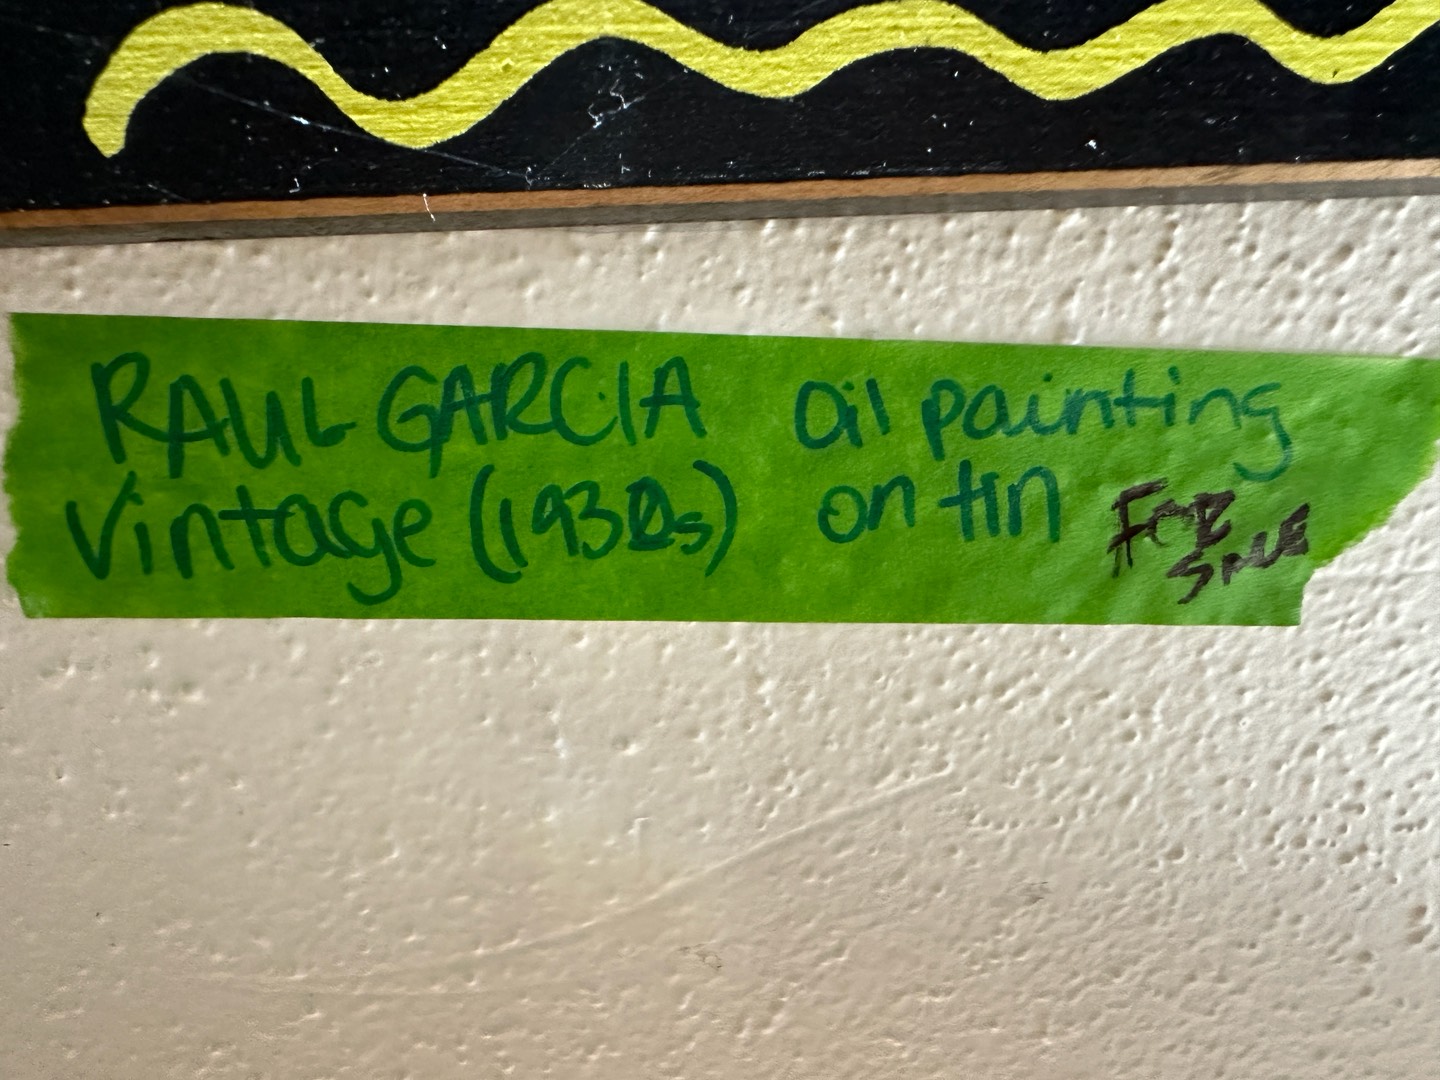 RAUL GARCIA oil painting
Vintage (1930s) on tin
FOR
SALE